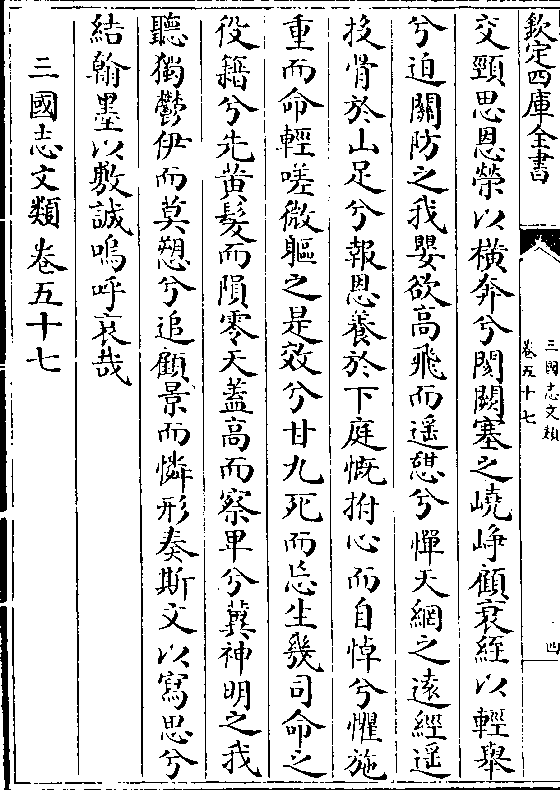 欽定四庫全書
三國志文類
卷五十七
四
交頸思恩榮以橫奔兮閡闕塞之嶢崢顧衰絰以輕舉
兮迫關防之我嬰欲高飛而遥憇兮憚天網之逺經遥
投骨於山足兮報恩養於下庭慨拊心而自悼兮懼施
重而命輕嗟微軀之是效兮甘九死而忘生幾司命之
役籍兮先黄髮而隕零天蓋高而察卑兮冀神明之我
聽獨鬱伊而莫愬兮追顧景而憐形奏斯文以寫思兮
結翰墨以敷誠嗚呼哀哉
三國志文類卷五十七